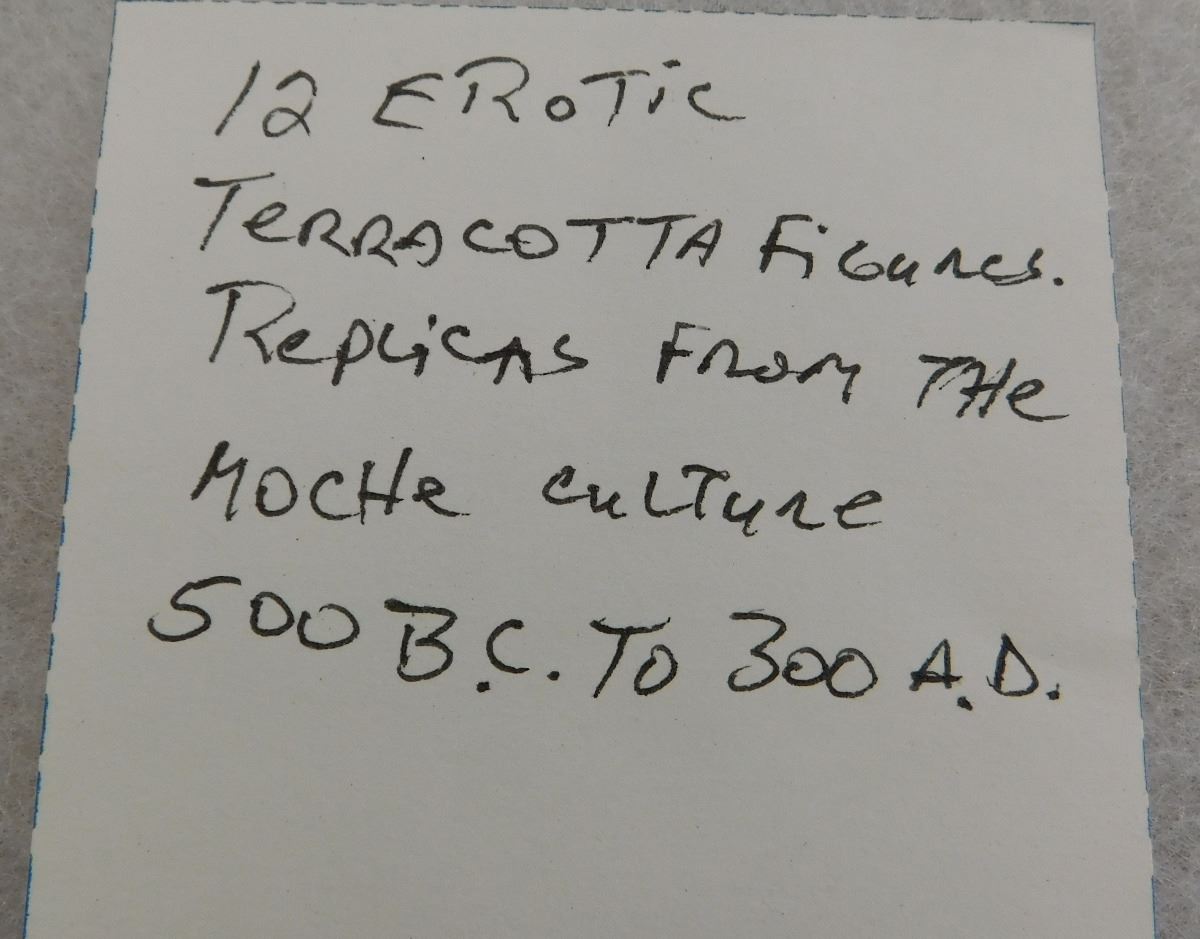 12 EROTiC
TeRRACOTTA FiGures.
RepLiCAS FROM THe
MOCHe CuLTure
500 B.C. To 300 A.D.